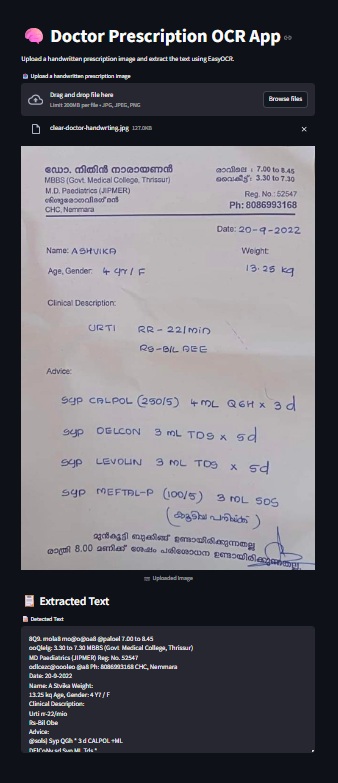 Doctor Prescription OCR App
Upload a handwritten prescription image and extract the text using EasyOCR.
Upload a handwritten prescription image
Drag and drop file here
Limit 200MB per file • JPG, JPEG, PNG
Browse files
clear-doctor-handwriting.jpg 127.0KB
ഡോ. നിതിൻ നാരായണൻ
MBBS (Govt. Medical College, Thrissur)
M.D. Paediatrics (JIPMER)
ശിശുരോഗവിദഗ്ദൻ
CHC, Nemmara
രാവിലെ : 7.00 to 8.45
വൈകീട്ട് : 3.30 to 7.30
Reg. No : 52547
Ph: 8086993168
Date: 20-9-2022
Name: ASHVIKA
Weight:
Age, Gender: 4 Yr/ F
13.25 kg
Clinical Description:
URTI RR - 22/min
RS-B/L AEE
Advice:
Syp CALPOL (250/5) 4 mL Q6H x 3d
Syp DELCON 3 mL TDS x 5d
Syp LEVOLIN 3 mL TDS x 5d
Syp MEFTAL-P (100/5) 3 mL SOS
മുൻകൂട്ടി ബുക്കിങ്ങ് ഉണ്ടായിരിക്കുന്നതല്ല
രാത്രി 8.00 മണിക്ക് ശേഷം പരിശോധന ഉണ്ടായിരിക്കുന്നതല്ല
Uploaded Image
Extracted Text
Detected Text
8Q9. mola8 mo@o@oa8 @paloel 7.00 to 8.45
ooQlelg: 3.30 to 7.30 MBBS (Govt Medical College, Thrissur)
MD Paediatrics (JIPMER) Reg: No. 52547
Ph: 8086993168 CHC, Nemmara
Date: 20-9-2022
Name: A Stvika Weight:
13.25 kq Age, Gender: 4 Y7 / F
Clinical Description:
Urti rr-22/mio
Rs-Bil Obe
Advice:
@sols) Syp QGh * 3 d CALPOL +ML